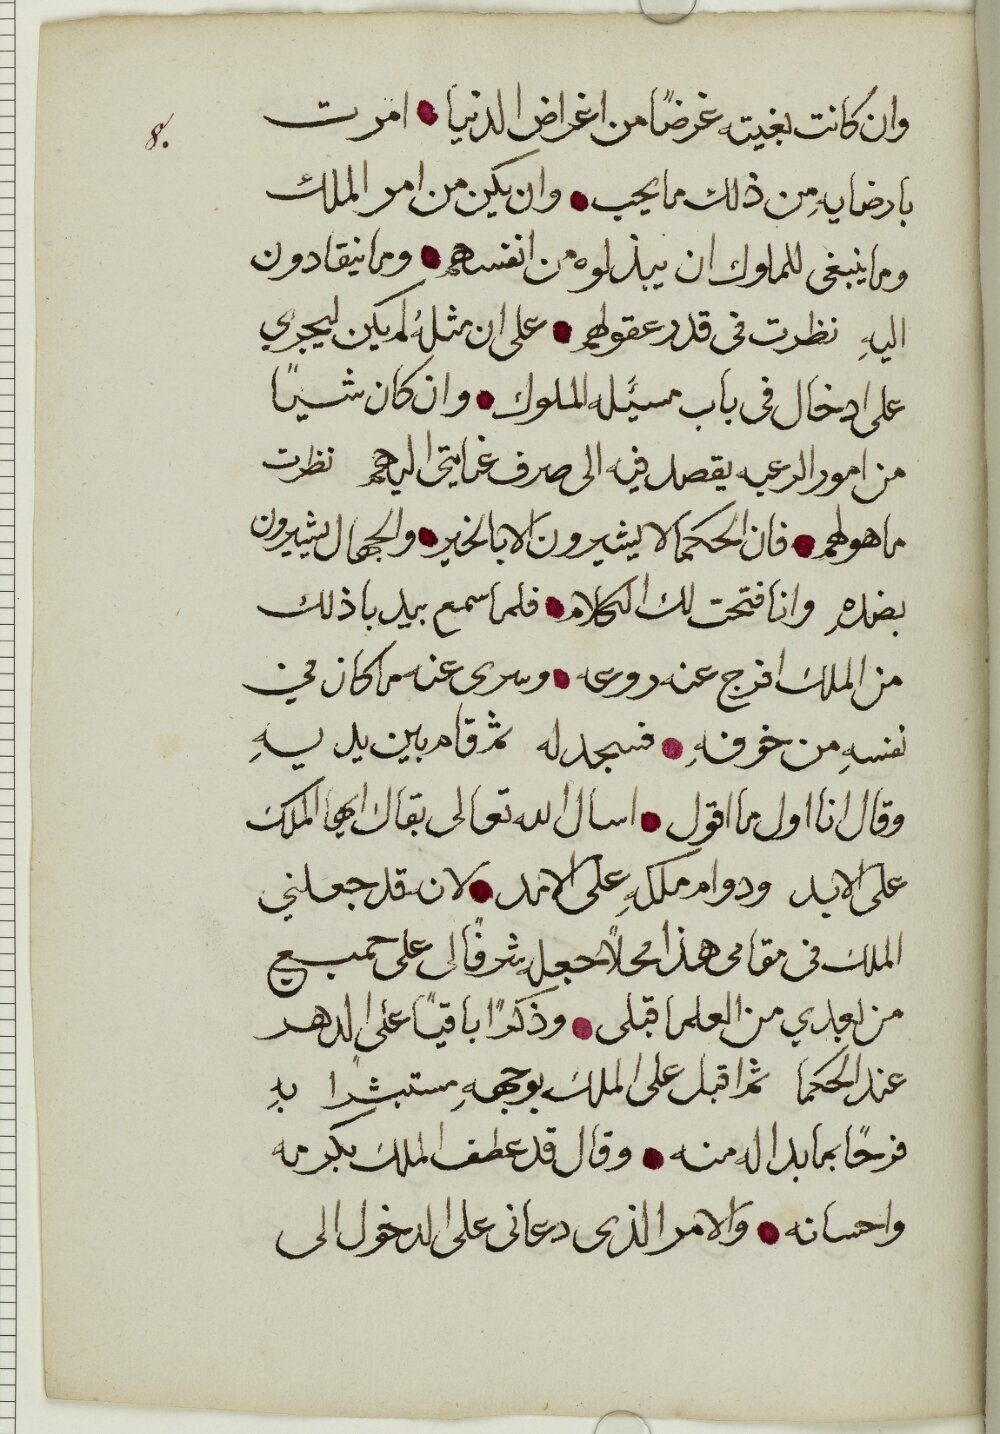 وان كانت بغيته غرضًا من اغراض الدنيا ● امرت
8.
بارضايهِ من ذلك ما يجب ● وان يكن من امر الملك
وما ينبغى للملوك ان يبذلوه من انفسهم ● وما ينقادون
اليهِ نظرت فى قدر عقولهم ● على ان مثلهُ لم يكن ليجري
على ادخال فى باب مسئله الملوك ● وان كان شيًا
من امور الرعيه يقصد فيه الى صرف عنايتى اليهم نظرت
ما هو لهم ● فان الحكما لا يشيرون الا بالخير ● والجهال يشيرون
بضدهِ وانا فتحت لك الكلام ● فلما سمع بيدبا ذلك
من الملك افرج عنه روعه ● وسرى عنه ما كان في
نفسهِ من خوفهِ ● فسجد له ثم قام بين يديهِ
وقال انا اول ما اقول ● اسال الله تعالى بقاك ايها الملك
على الابد ودوام ملكهِ على الامد ● لان قد جعلني
الملك فى مقامى هذا محلاً جعله شرفًا لى على جميع
من بعدي من العلما قبلى ● وذكرًا باقيًا على الدهر
عند الحكما ثم اقبل على الملك بوجههِ مستبشرًا بهِ
فرحًا بما بدا له منه ● وقال قد عطف الملك بكرمه
واحسانه ● والامر الذى دعانى على الدخول الى